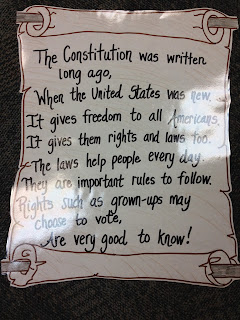 The Constitution was written
long ago,
When the United States was new.
It gives freedom to all Americans.
It gives them rights and laws too.
The laws help people every day.
They are important rules to follow.
Rights such as grown-ups may
choose to vote,
Are very good to know!